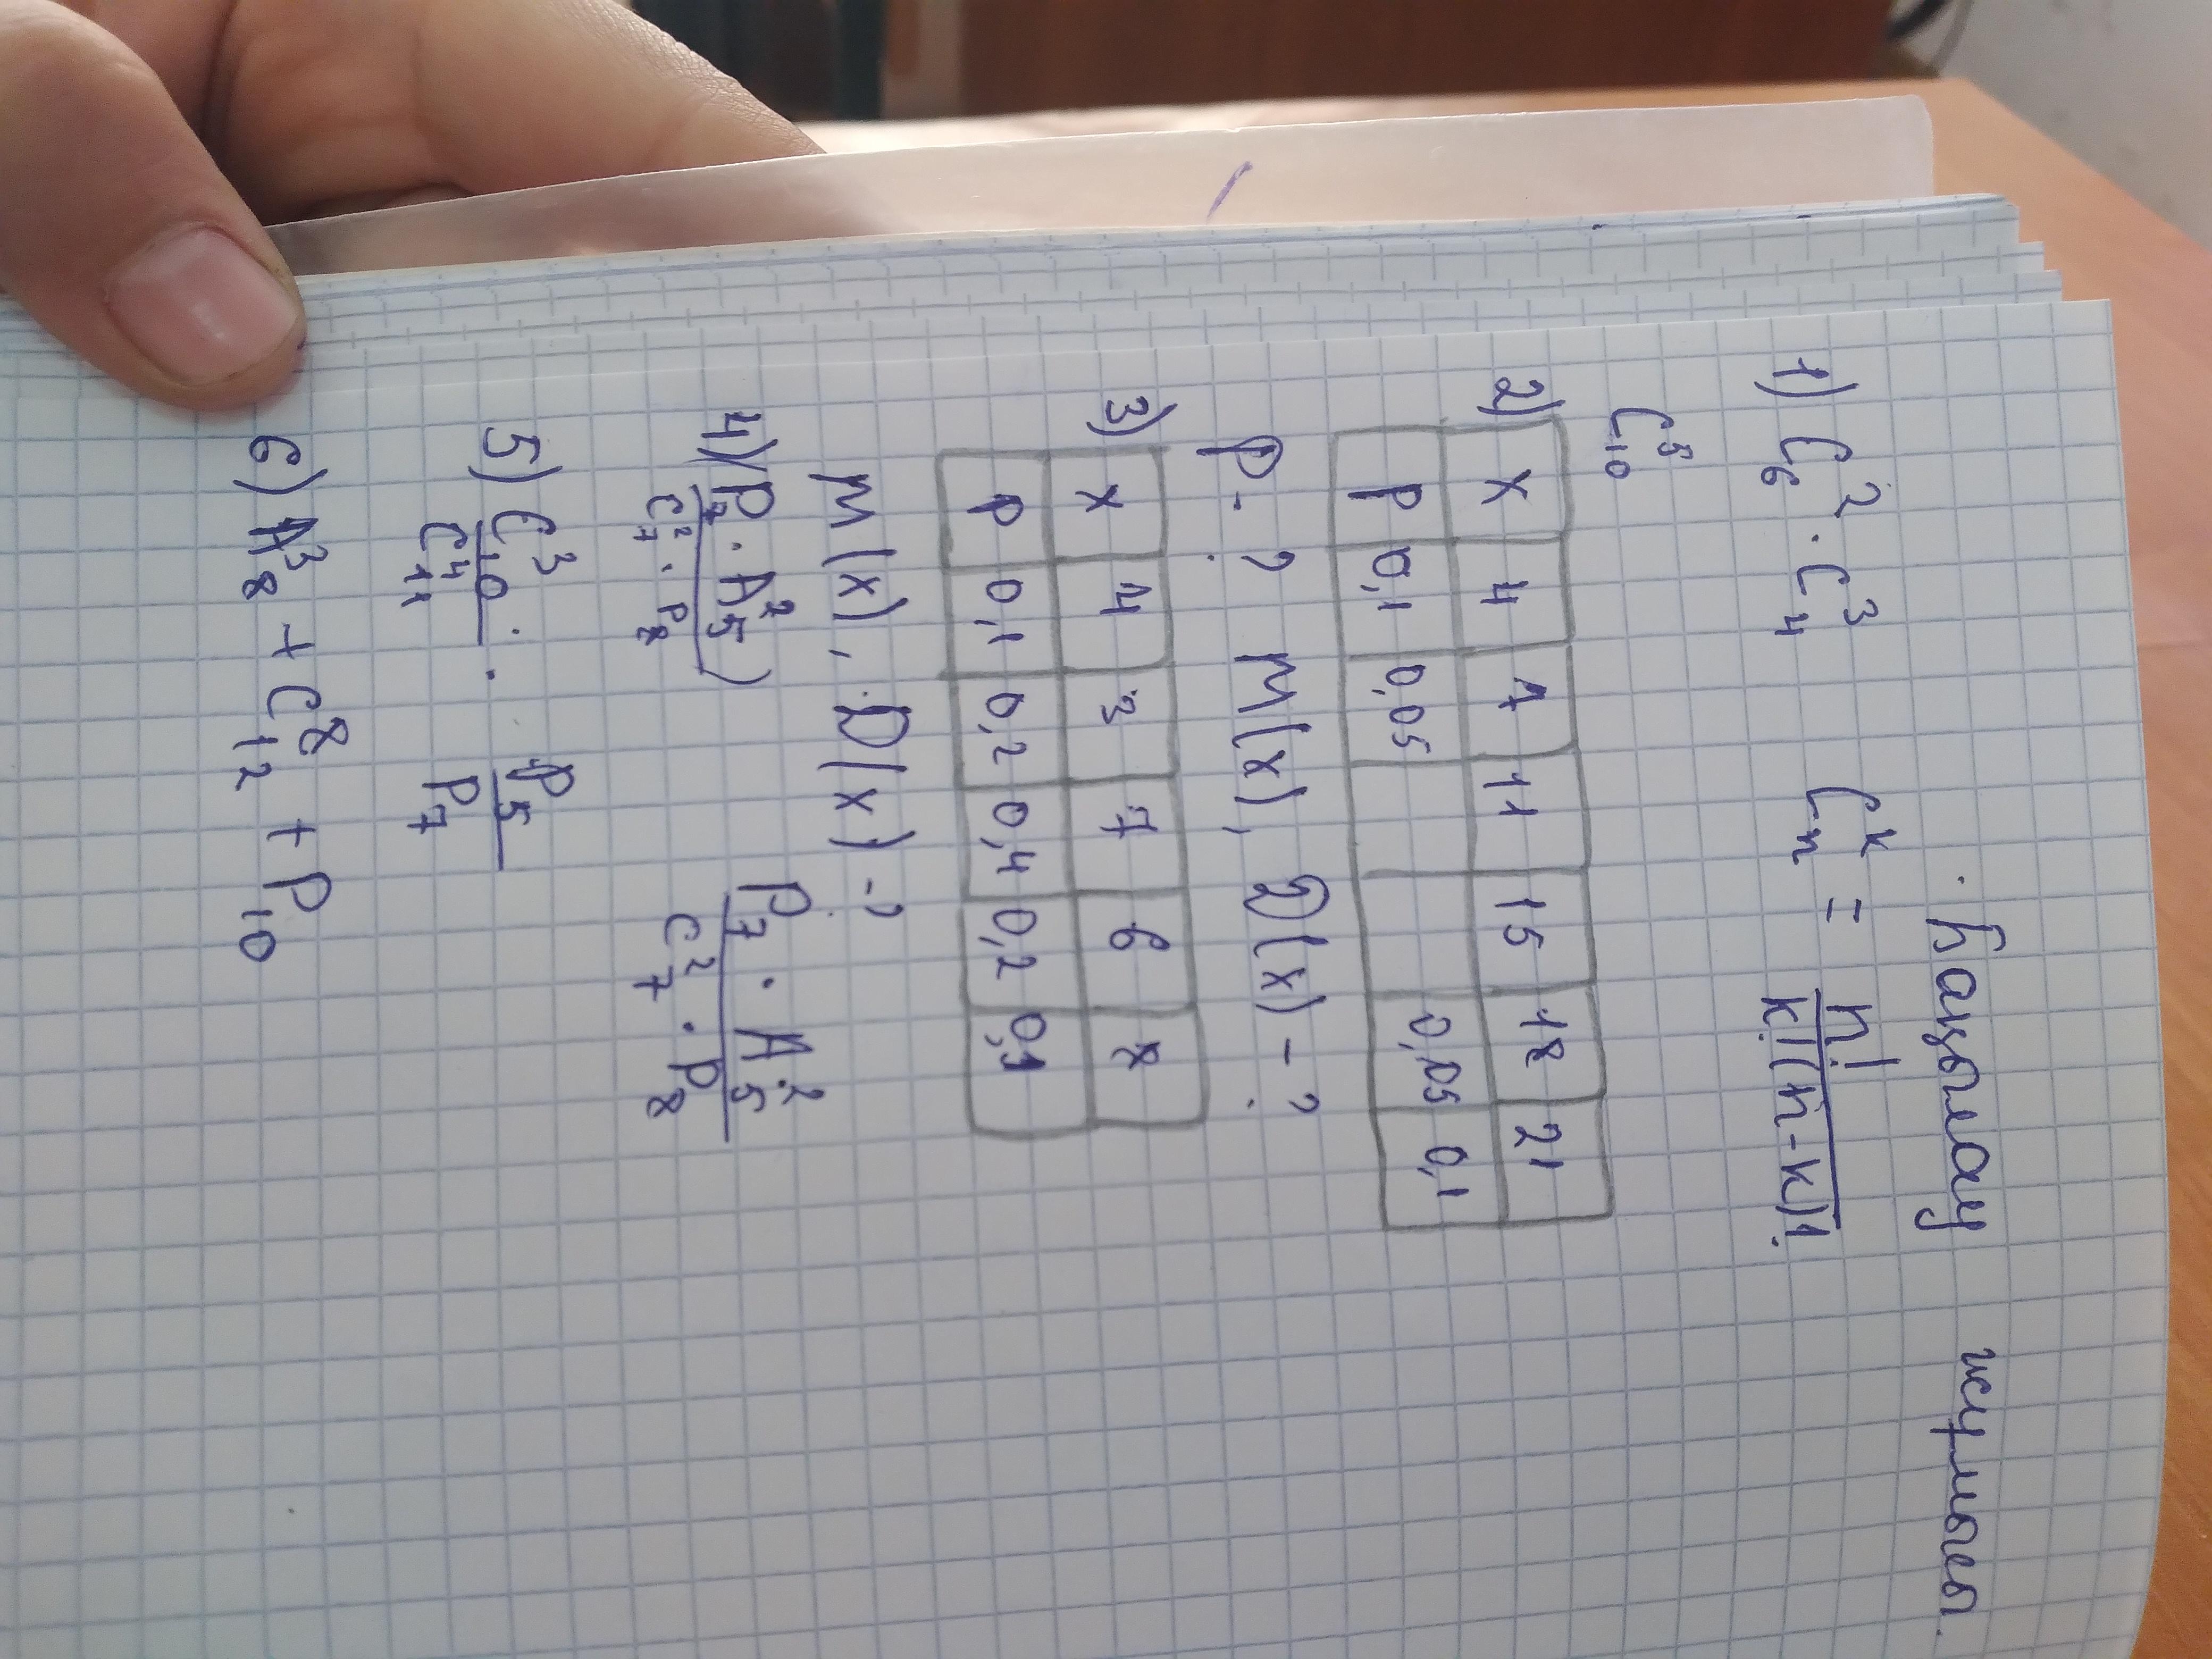 Бақылау жұмысы.
1) C₆² · C₄³ Cₙᵏ = n! / k!(n-k)!
C₁₀⁵
2) x 4 7 11 15 18 21
P 0,1 0,05 0,05 0,1
P-? M(x), D(x) - ?
3) x 4 3 7 6 8
P 0,1 0,2 0,4 0,2 0,1
M(x), D(x) -?
4) (P₇ · A₅²) / C₇² · P₈ P₇ · A₅² / C₇² · P₈
5) C₁₀³ / C₁₁⁴ · P₅ / P₇
6) A₈³ + C₁₂⁸ + P₁₀